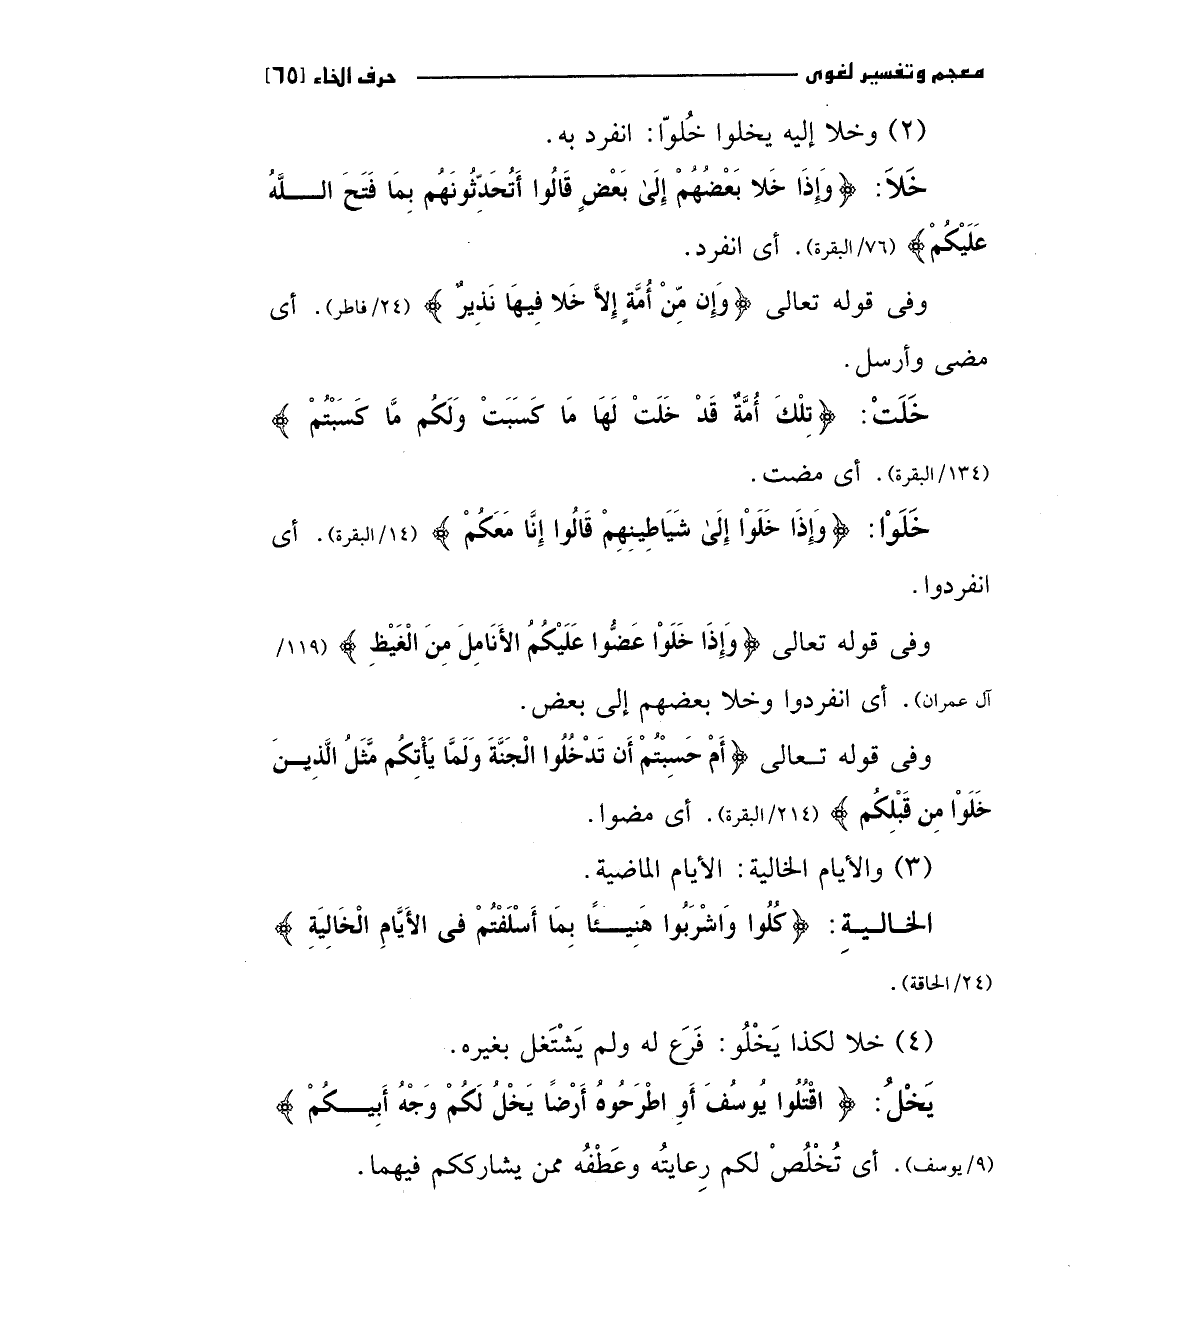 معجم وتفسير لغوى ــــــــــــ حرف الخاء [٦٥]
(٢) وخلا إليه يخلوا خُلوّا: انفرد به.
خَلاَ: ﴿وَإِذَا خَلا بَعْضُهُمْ إِلَىٰ بَعْضٍ قَالُوا أَتُحَدِّثُونَهُم بِمَا فَتَحَ اللَّهُ
عَلَيْكُمْ﴾ (٧٦/ البقرة). أى انفرد.
وفى قوله تعالى ﴿وَإِن مِّنْ أُمَّةٍ إِلاَّ خَلا فِيهَا نَذِيرٌ﴾ (٢٤/ فاطر). أى
مضى وأرسل.
خَلَتْ: ﴿تِلْكَ أُمَّةٌ قَدْ خَلَتْ لَهَا مَا كَسَبَتْ وَلَكُم مَّا كَسَبْتُمْ﴾
(١٣٤/ البقرة). أى مضت.
خَلَوْا: ﴿وَإِذَا خَلَوْا إِلَىٰ شَيَاطِينِهِمْ قَالُوا إِنَّا مَعَكُمْ﴾ (١٤/ البقرة). أى
انفردوا.
وفى قوله تعالى ﴿وَإِذَا خَلَوْا عَضُّوا عَلَيْكُمُ الأَنَامِلَ مِنَ الْغَيْظِ﴾ (١١٩/
آل عمران). أى انفردوا وخلا بعضهم إلى بعض.
وفى قوله تـعالى ﴿أَمْ حَسِبْتُمْ أَن تَدْخُلُوا الْجَنَّةَ وَلَمَّا يَأْتِكُم مَّثَلُ الَّذِيـنَ
خَلَوْا مِن قَبْلِكُم﴾ (٢١٤/ البقرة). أى مضوا.
(٣) والأيام الخالية: الأيام الماضية.
الخـالـيـةِ: ﴿كُلُوا وَاشْرَبُوا هَنِيـئًا بِمَا أَسْلَفْتُمْ فى الأَيَّامِ الْخَالِيَةِ﴾
(٢٤/ الحاقة).
(٤) خلا لكذا يَخْلُو: فَرَع له ولم يَشْتَغل بغيره.
يَخْلُ: ﴿اقْتُلُوا يُوسُفَ أَوِ اطْرَحُوهُ أَرْضًا يَخْلُ لَكُمْ وَجْهُ أَبِيـكُمْ﴾
(٩/ يوسف). أى تُخْلُصْ لكم رِعايتُه وعَطْفُه ممن يشارككم فيهما.